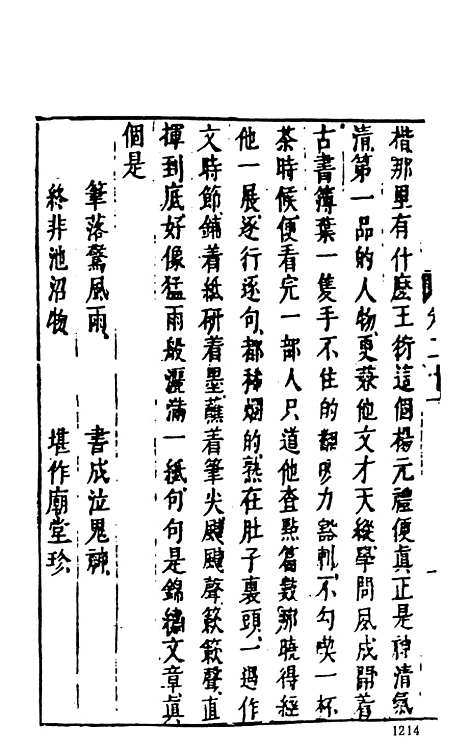 楷那里有什麽王衍這個楊元禮便真正是神清氣
清第一品的人物更兼他文才天縱學問夙成開着
古書簿葉一隻手不住的翻吸力豁剌不勾喫一杯
茶時候便看完一部人只道他查點篇數那曉得經
他一展逐行逐句都稀爛的熟在肚子裏頭一遇作
文時節鋪着紙研着墨蘸着筆尖颼颼聲簌簌聲直
揮到底好像猛雨般灑滿一紙句句是錦繡文章真
個是
筆落驚風雨　書成泣鬼神
終非池沼物　堪作廟堂珍
1214